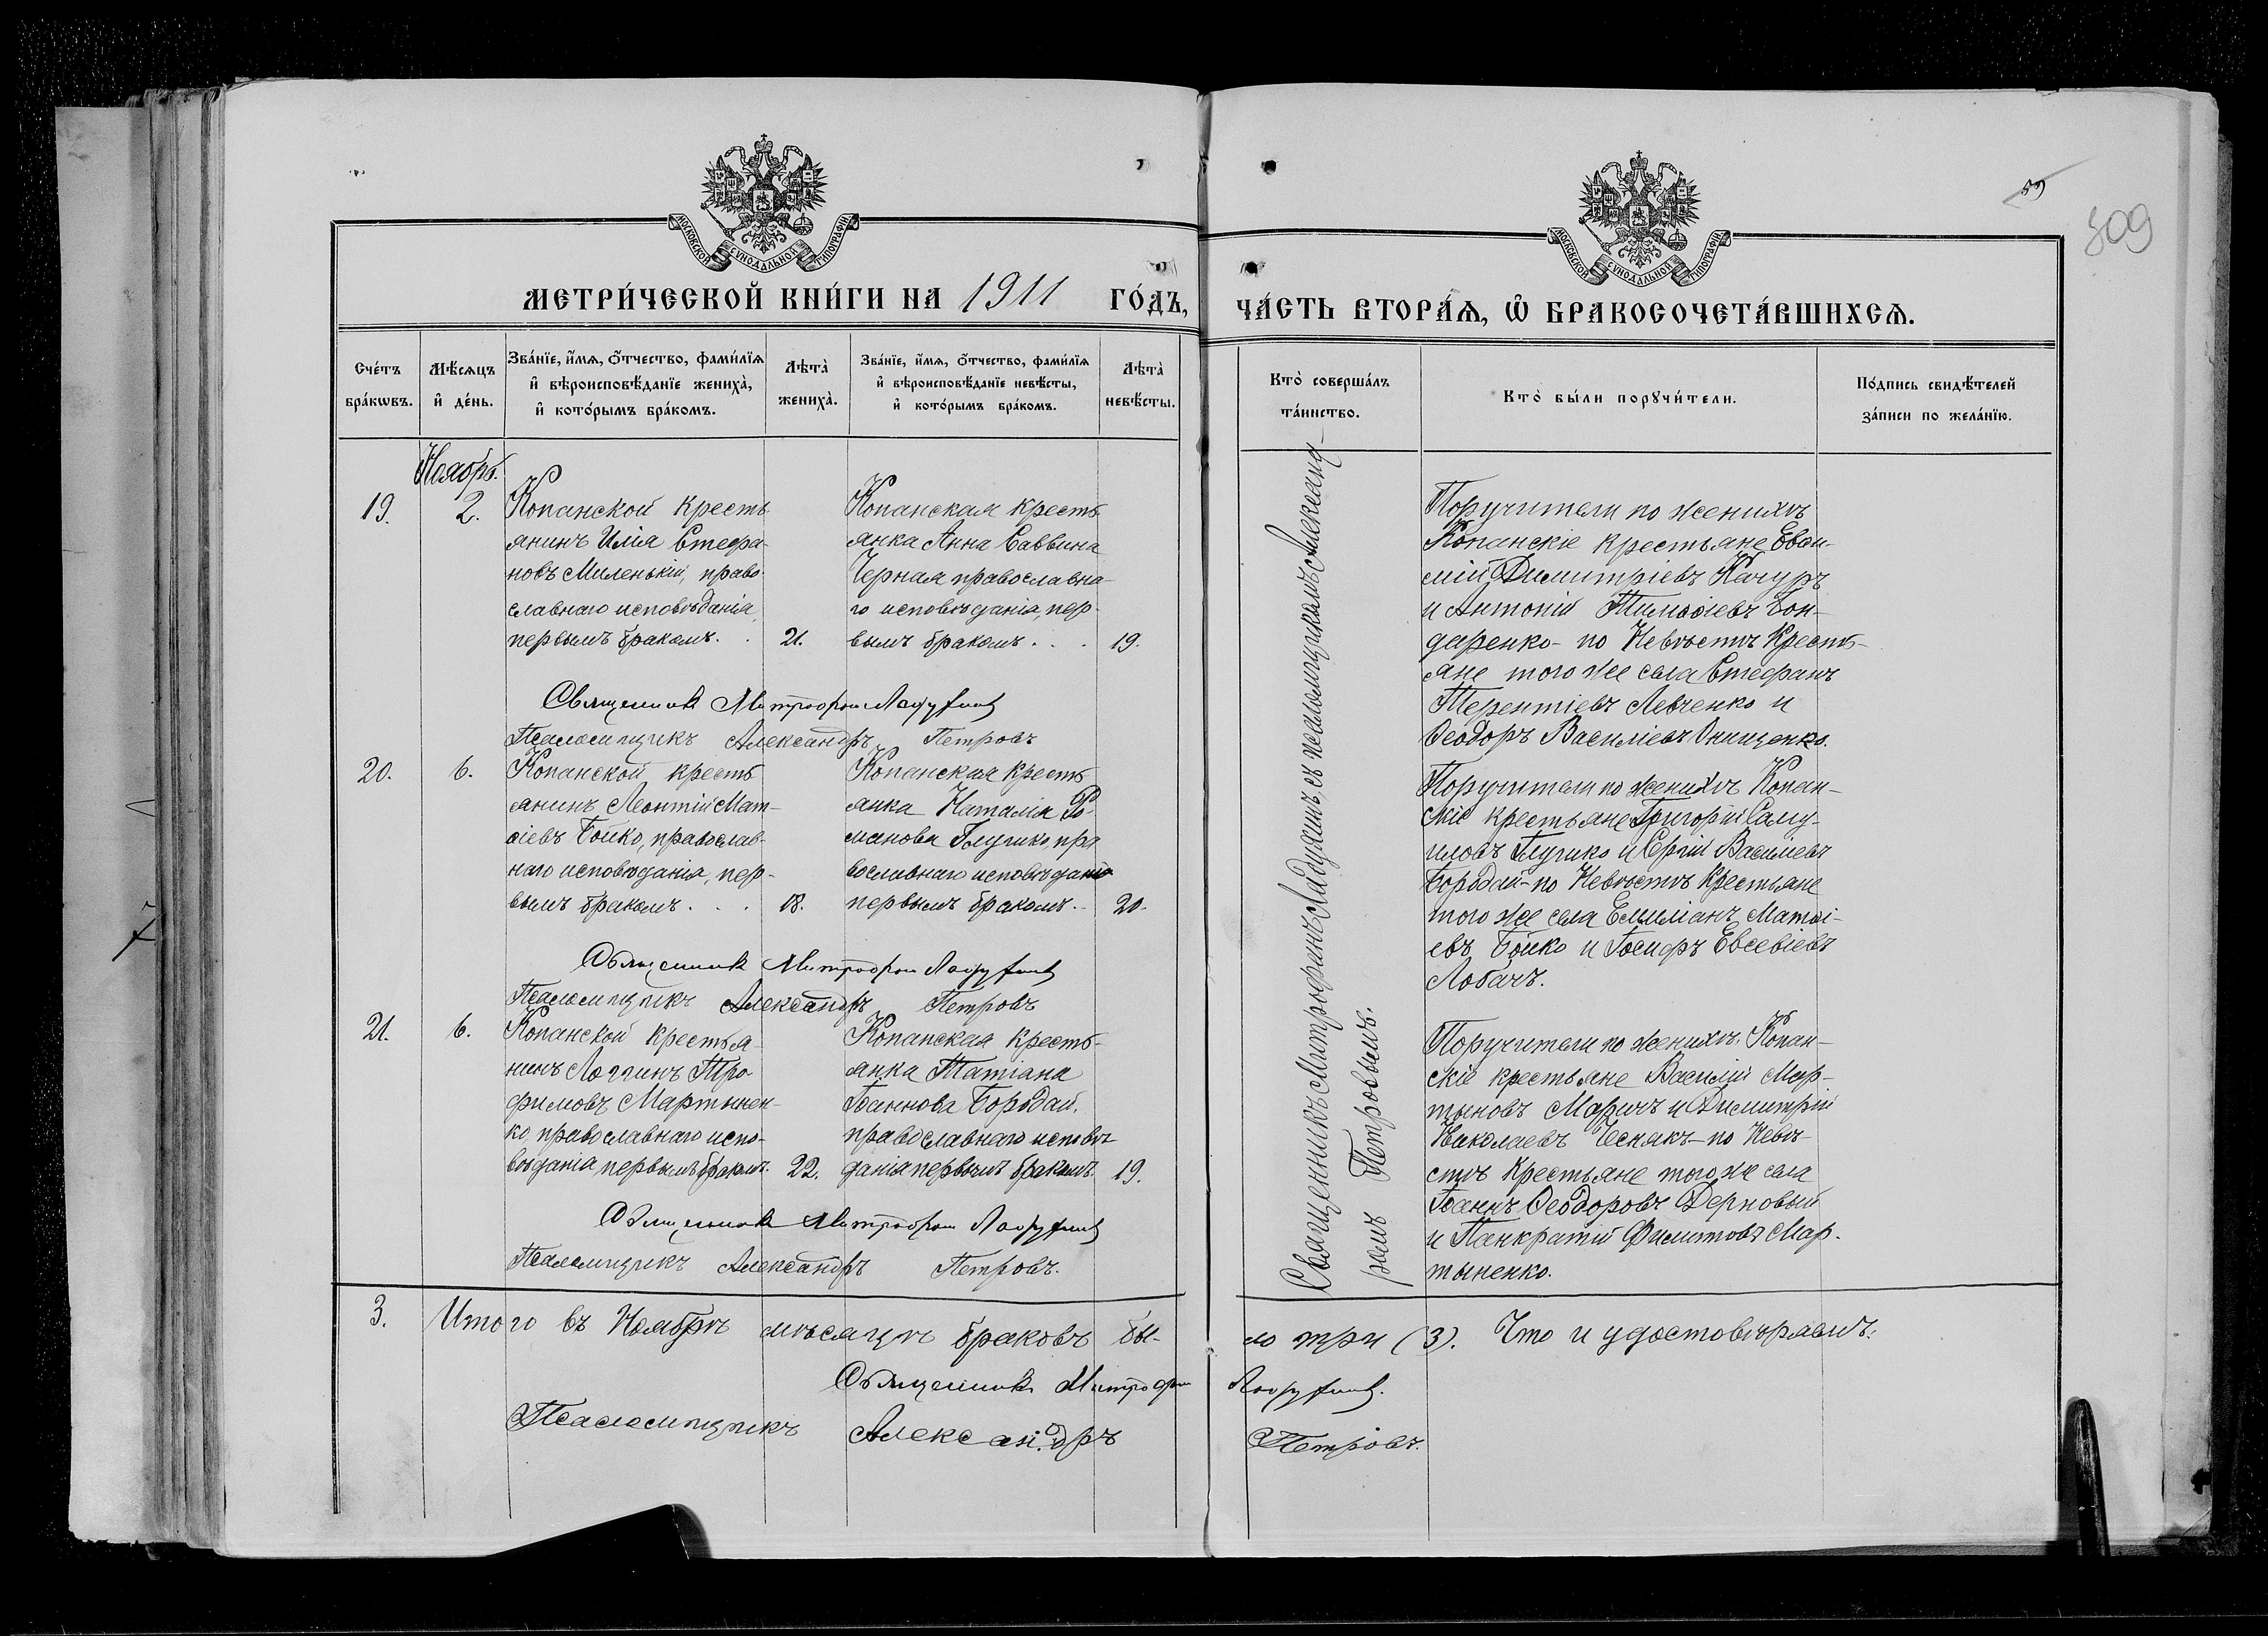 МОСКОВСКОЙ СѴНОДАЛЬНОЙ ТИПОГРАФІИ
МОСКОВСКОЙ СѴНОДАЛЬНОЙ ТИПОГРАФІИ
59
309
МЕТРИ́ЧЕСКОЙ КНИ́ГИ НА 1911 ГО́ДЪ,
ЧА́СТЬ ВТОРА́Ѧ, Ѽ БРАКОСОЧЕТА́ВШИХСѦ.
Сче́тъ
бра́кѡвъ.
Мѣ́сѧцъ
и҆ де́нь.
Зва́нїе, и҆́мѧ, ѻ҆́тчество, фами́лїѧ
и҆ вѣроисповѣ́данїе жениха̀,
и҆ кото́рымъ бра́комъ.
Лѣта̀
жениха̀.
Зва́нїе, и҆́мѧ, ѻ҆́тчество, фами́лїѧ
и҆ вѣроисповѣ́данїе невѣ́сты,
и҆ кото́рымъ бра́комъ.
Лѣта̀
невѣ́сты.
Кто̀ соверша́лъ
та́инство.
Кто̀ бы́ли порꙋчи́тели.
По́дпись свидѣ́телей
за́писи по жела́нїю.
Ноябрь.
19.
2.
Копанской кресть
янинъ Илія Стефа-
новъ Миленькій, право-
славнаго исповѣданія,
первымъ бракомъ. .
21.
Копанская кресть
янка Анна Саввина
Черная православна-
го исповѣданія, пер-
вымъ бракомъ. . .
19.
Поручители по женихѣ
Копанскіе крестьяне Евѳи-
мій Димитріевъ Качуръ
и Антоній Тимоѳіевъ Бон-
даренко - по Невѣстѣ Кресть-
яне того же села Стефанъ
Терентіевъ Левченко и
Ѳеодоръ Василіевъ Онищенко.
Священникъ Митрофанъ Ладухинъ
Псаломщикъ Александръ Петровъ
20.
6.
Копанской кресть
янинъ Леонтій Мат-
ѳіевъ Бойко, православ-
наго исповѣданія, пер-
вымъ бракомъ. . .
18.
Копанская кресть
янка Наталія Ро-
манова Глушко, пра
вославнаго исповѣданія
первымъ бракомъ. .
20.
Поручители по женихѣ Копан-
скіе крестьяне Григорій Саму-
иловъ Глушко и Сергій Василіевъ
Бородай - по Невѣстѣ Крестьяне
того же села Емиліанъ Матѳі-
евъ Бойко и Іосифъ Евсевіевъ
Лобачъ.
Священникъ Митрофанъ Ладухинъ
Псаломщикъ Александръ Петровъ
21.
6.
Копанской крестья-
нинъ Логгинъ Тро-
фимовъ Мартынен-
ко, православнаго испо-
вѣданія первымъ бракомъ.
22.
Копанская кресть-
янка Татіана
Іоаннова Бородай,
православнаго исповѣ
данія первымъ бракомъ.
19.
Поручители по женихѣ Копан-
скіе крестьяне Василій Мар-
тыновъ Маричъ и Димитрій
Николаевъ Чеснякъ - по Невѣ-
стѣ Крестьяне того же села
Іоаннъ Ѳеодоровъ Дерновый
и Панкратій Филитовъ Мар-
тыненко.
Священникъ Митрофанъ Ладухинъ
Псаломщикъ Александръ Петровъ.
Священникъ Митрофанъ Ладухинъ, съ псаломщикомъ Александ-
ромъ Петровымъ.
3. Итого въ Ноябрѣ мѣсяцѣ браковъ бы-
ло три (3). Что и удостовѣряемъ:
Священникъ Митрофанъ Ладухинъ.
Псаломщикъ Александръ Петровъ.